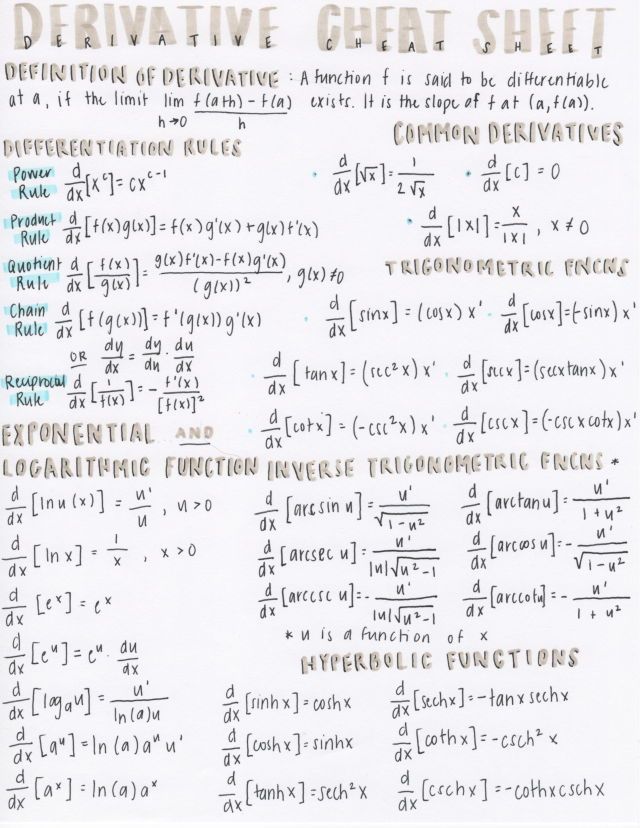 DERIVATIVE CHEAT SHEET
DERIVATIVE CHEAT SHEET
DEFINITION OF DERIVATIVE: A function f is said to be differentiable
at a, if the limit lim h→0 (f(a+h) - f(a))/h exists. It is the slope of f at (a, f(a)).
DIFFERENTIATION RULES
Power Rule d/dx [x^c] = cx^(c-1)
Product Rule d/dx [f(x)g(x)] = f(x)g'(x) + g(x)f'(x)
Quotient Rule d/dx [f(x)/g(x)] = (g(x)f'(x) - f(x)g'(x))/(g(x))², g(x) ≠ 0
Chain Rule d/dx [f(g(x))] = f'(g(x)) g'(x)
OR dy/dx = dy/du · du/dx
Reciprocal Rule d/dx [1/f(x)] = - f'(x)/[f(x)]²
COMMON DERIVATIVES
• d/dx [√x] = 1/(2√x) • d/dx [c] = 0
• d/dx [|x|] = x/|x|, x ≠ 0
TRIGONOMETRIC FNCNS
• d/dx [sinx] = (cosx) x' • d/dx [cosx] = (-sinx) x'
• d/dx [tanx] = (sec²x) x' • d/dx [secx] = (secxtanx) x'
• d/dx [cotx] = (-csc²x) x' • d/dx [cscx] = (-cscxcotx) x'
EXPONENTIAL AND
LOGARITHMIC FUNCTION
d/dx [ln u(x)] = u'/u, u > 0
d/dx [lnx] = 1/x, x > 0
d/dx [e^x] = e^x
d/dx [e^u] = e^u · du/dx
d/dx [log_a u] = u'/(ln(a)u)
d/dx [a^u] = ln(a) a^u u'
d/dx [a^x] = ln(a) a^x
INVERSE TRIGONOMETRIC FNCNS *
d/dx [arcsin u] = u'/√(1-u²) d/dx [arctanu] = u'/(1+u²)
d/dx [arcsec u] = u'/(|u|√(u²-1)) d/dx [arccos u] = - u'/√(1-u²)
d/dx [arccsc u] = - u'/(|u|√(u²-1)) d/dx [arccotu] = - u'/(1+u²)
* u is a function of x
HYPERBOLIC FUNCTIONS
d/dx [sinhx] = coshx d/dx [sechx] = -tanxsechx
d/dx [coshx] = sinhx d/dx [cothx] = -csch²x
d/dx [tanhx] = sech²x d/dx [cschx] = -cothxcschx